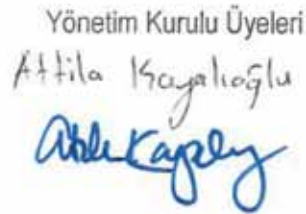 Yönetim Kurulu Üyeleri
Attila Kayalıoğlu